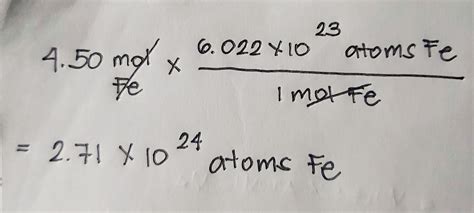 4.50 mol Fe × 6.022 × 10²³ atoms Fe
1 mol Fe
= 2.71 × 10²⁴ atoms Fe